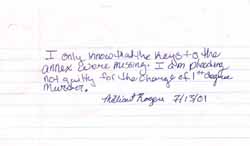 I only know that the keys to the
annex were missing. I am pleading
not guilty for the charge of 1st degree
murder.
7/13/01